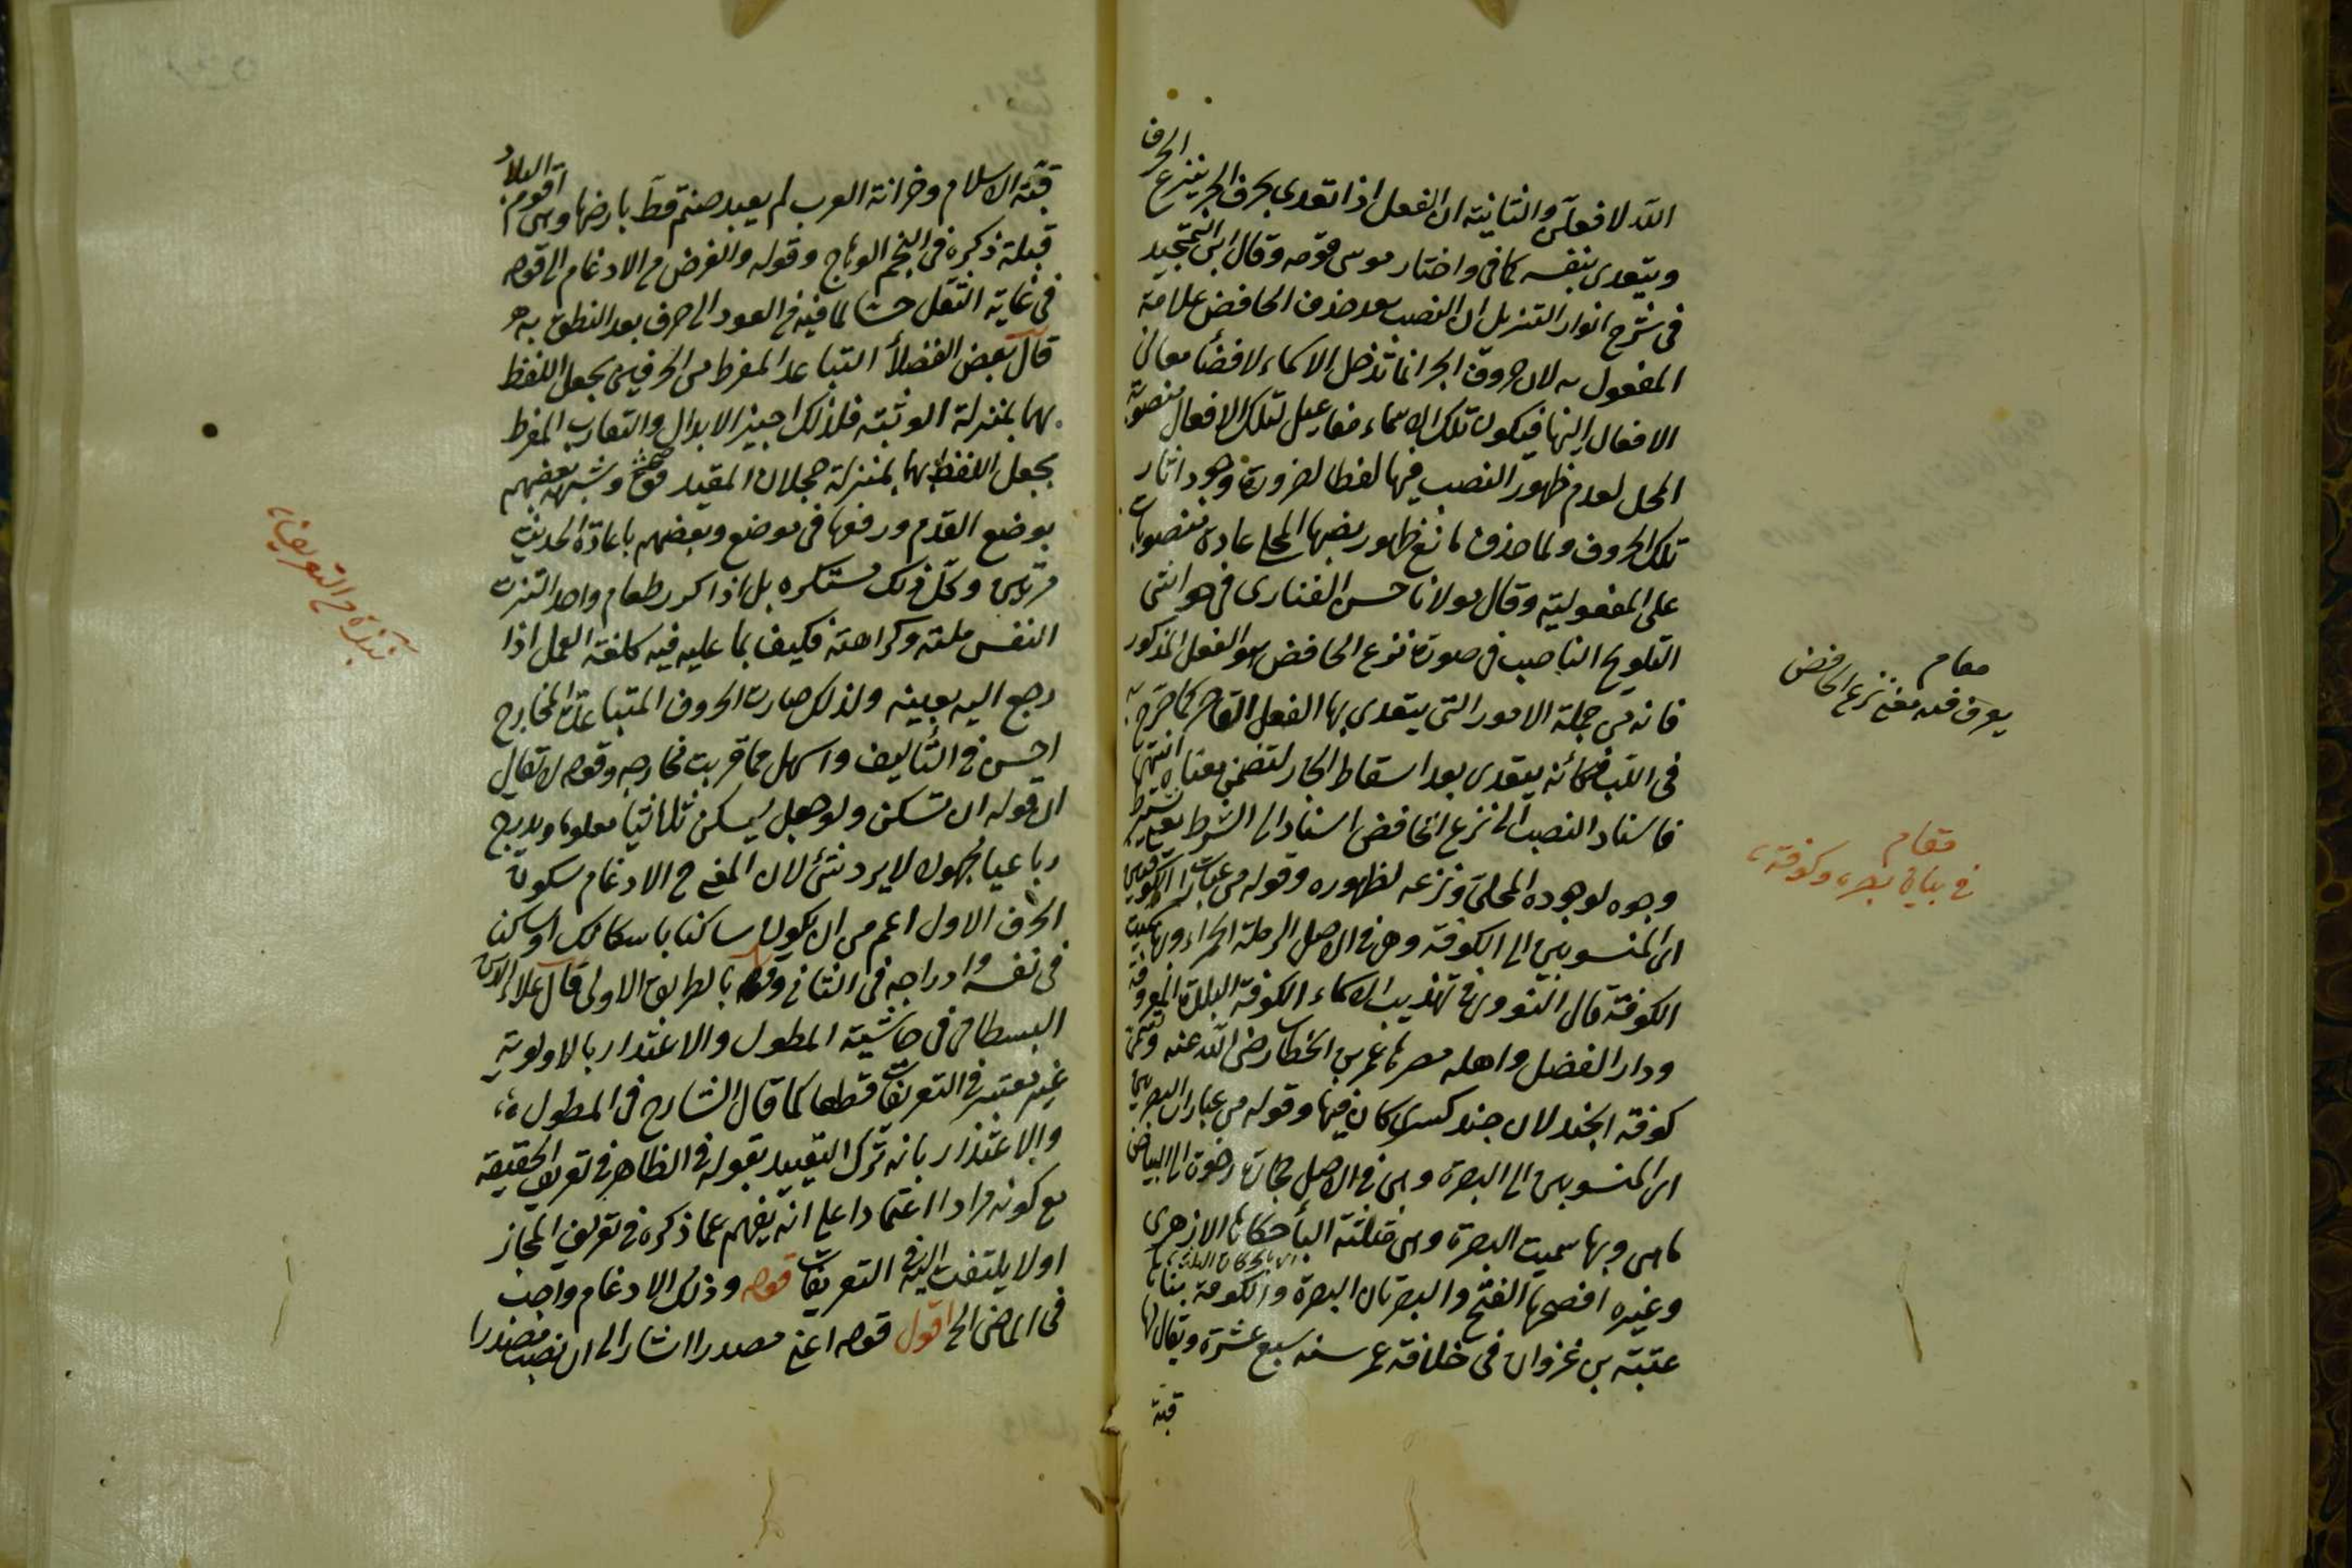 الله لافعلن والثانية ان الفعل اذا تعدى بحرف الجر ينزع الحرف
ويتعدى بنفسه كما فى واختار موسى قومه وقال ابن التمجيد
فى شرح انوار التنزيل ان النصب بعد حذف الخافض علامة
المفعول به لان حروف الجر انما تدخل الاسماء لافضاء معانى
الافعال اليها فيكون تلك الاسماء مفاعيل لتلك الافعال منصوبة
المحل لعدم ظهور النصب فيها لفظا لضرورة وجود اثار
تلك الحروف ولما حذف مانع ظهور نصبها المحلى عادة منصوبات
على المفعولية وقال مولانا حسن الفنارى فى حواشى
التلويح الناصب فى صورة نزع الخافض هو الفعل المذكور
فانه من جملة الامور التى يتعدى بها الفعل القاصر كما صرح به
فى اللب فكأنه يتعدى بعد اسقاط الجار لتضمن معناه انتهى
فاسناد النصب الى نزع الخافض اسناد الى الشرط
وجوه لوجوده المحلى ونزعه لظهوره وقوله من عبارات الكوفيين
اى المنسوبين الى الكوفة وهى فى الاصل الرملة الحمراء وبها سميت
الكوفة قال النووى فى تهذيب الاسماء الكوفة البلدة المعروفة
ودار الفضل واهله مصرها عمر بن الخطاب رضى الله عنه وتسمى
كوفة الجند لان جند كسرى كان فيها وقوله من عبارات البصريين
اى المنسوبين الى البصرة وهى فى الاصل حجارة رخوة الى البياض
ماهى وبها سميت البصرة وهى مثلثة الباء حكاها الازهرى
وغيره افصحها الفتح والبصرتان البصرة والكوفة بناها
عتبة بن غزوان فى خلافة عمر سنه سبع عشرة ويقال لها
قبة
مقام
يعرف فيه معنى نزع الخافض
مقام
فى بيان بصره وكوفة
قبة الاسلام وخزانة العرب لم يعبد صنم قط بارضها وهى اقوم البلاد
قبلة ذكره فى النجم الوهاج وقوله والغرض من الادغام الى قوله
فى غاية الثقل حسا لما فيه من العود الى حرف بعد النطق به
قال بعض الفضلاء التباعد المفرط من الحرفين يجعل اللفظ
بهما بمنزلة الوثبة فلذلك اجيز الابدال والتقارب المفرط
يجعل اللفظ بهما بمنزلة حجلان المقيد وشبهه بعضهم
بوضع القدم ورفعها فى موضع وبعضهم باعادة الحديث
مرتين وكل ذلك مستكره بل اذا كرر طعام واحد
النفس ملته وكراهته فكيف بما عليه فيه كلفة العمل اذا
رجع اليه بعينه ولذلك صارت الحروف المتباعدة المخارج
احسن فى التأليف واسهل مما قربت مخارجه وقوله لا يقال
ان قوله ان تسكن ولو جعل يسكن ثلاثيا معلوما ويدرج
رباعيا مجهولا لا يرد شئ لان المعنى ح الادغام سكون
الحرف الاول اعم من ان يكون ساكنا باسكانك او ساكنا
فى نفسه وادراجه فى الثانى وقوله بالطريق الاولى قال علاء الدين
البسطامى فى حاشية المطول والاعتذار بالاولوية
غير معتبر فى التعريفات قطعا كما قال الشارح فى المطول
والاعتذار بانه ترك التقييد بقوله فى الظاهر فى تعريف الحقيقة
مع كونه مرادا اعتمادا على انه يفهم مما ذكره فى تعريف المجاز
اولا يلتفت اليه فى التعريفات قوله وذلك الادغام واجب
فى الماضى الخ اقول قوله اعنى مصدرا اشار الى ان نصب مصدرا
نبذة من التعريفات